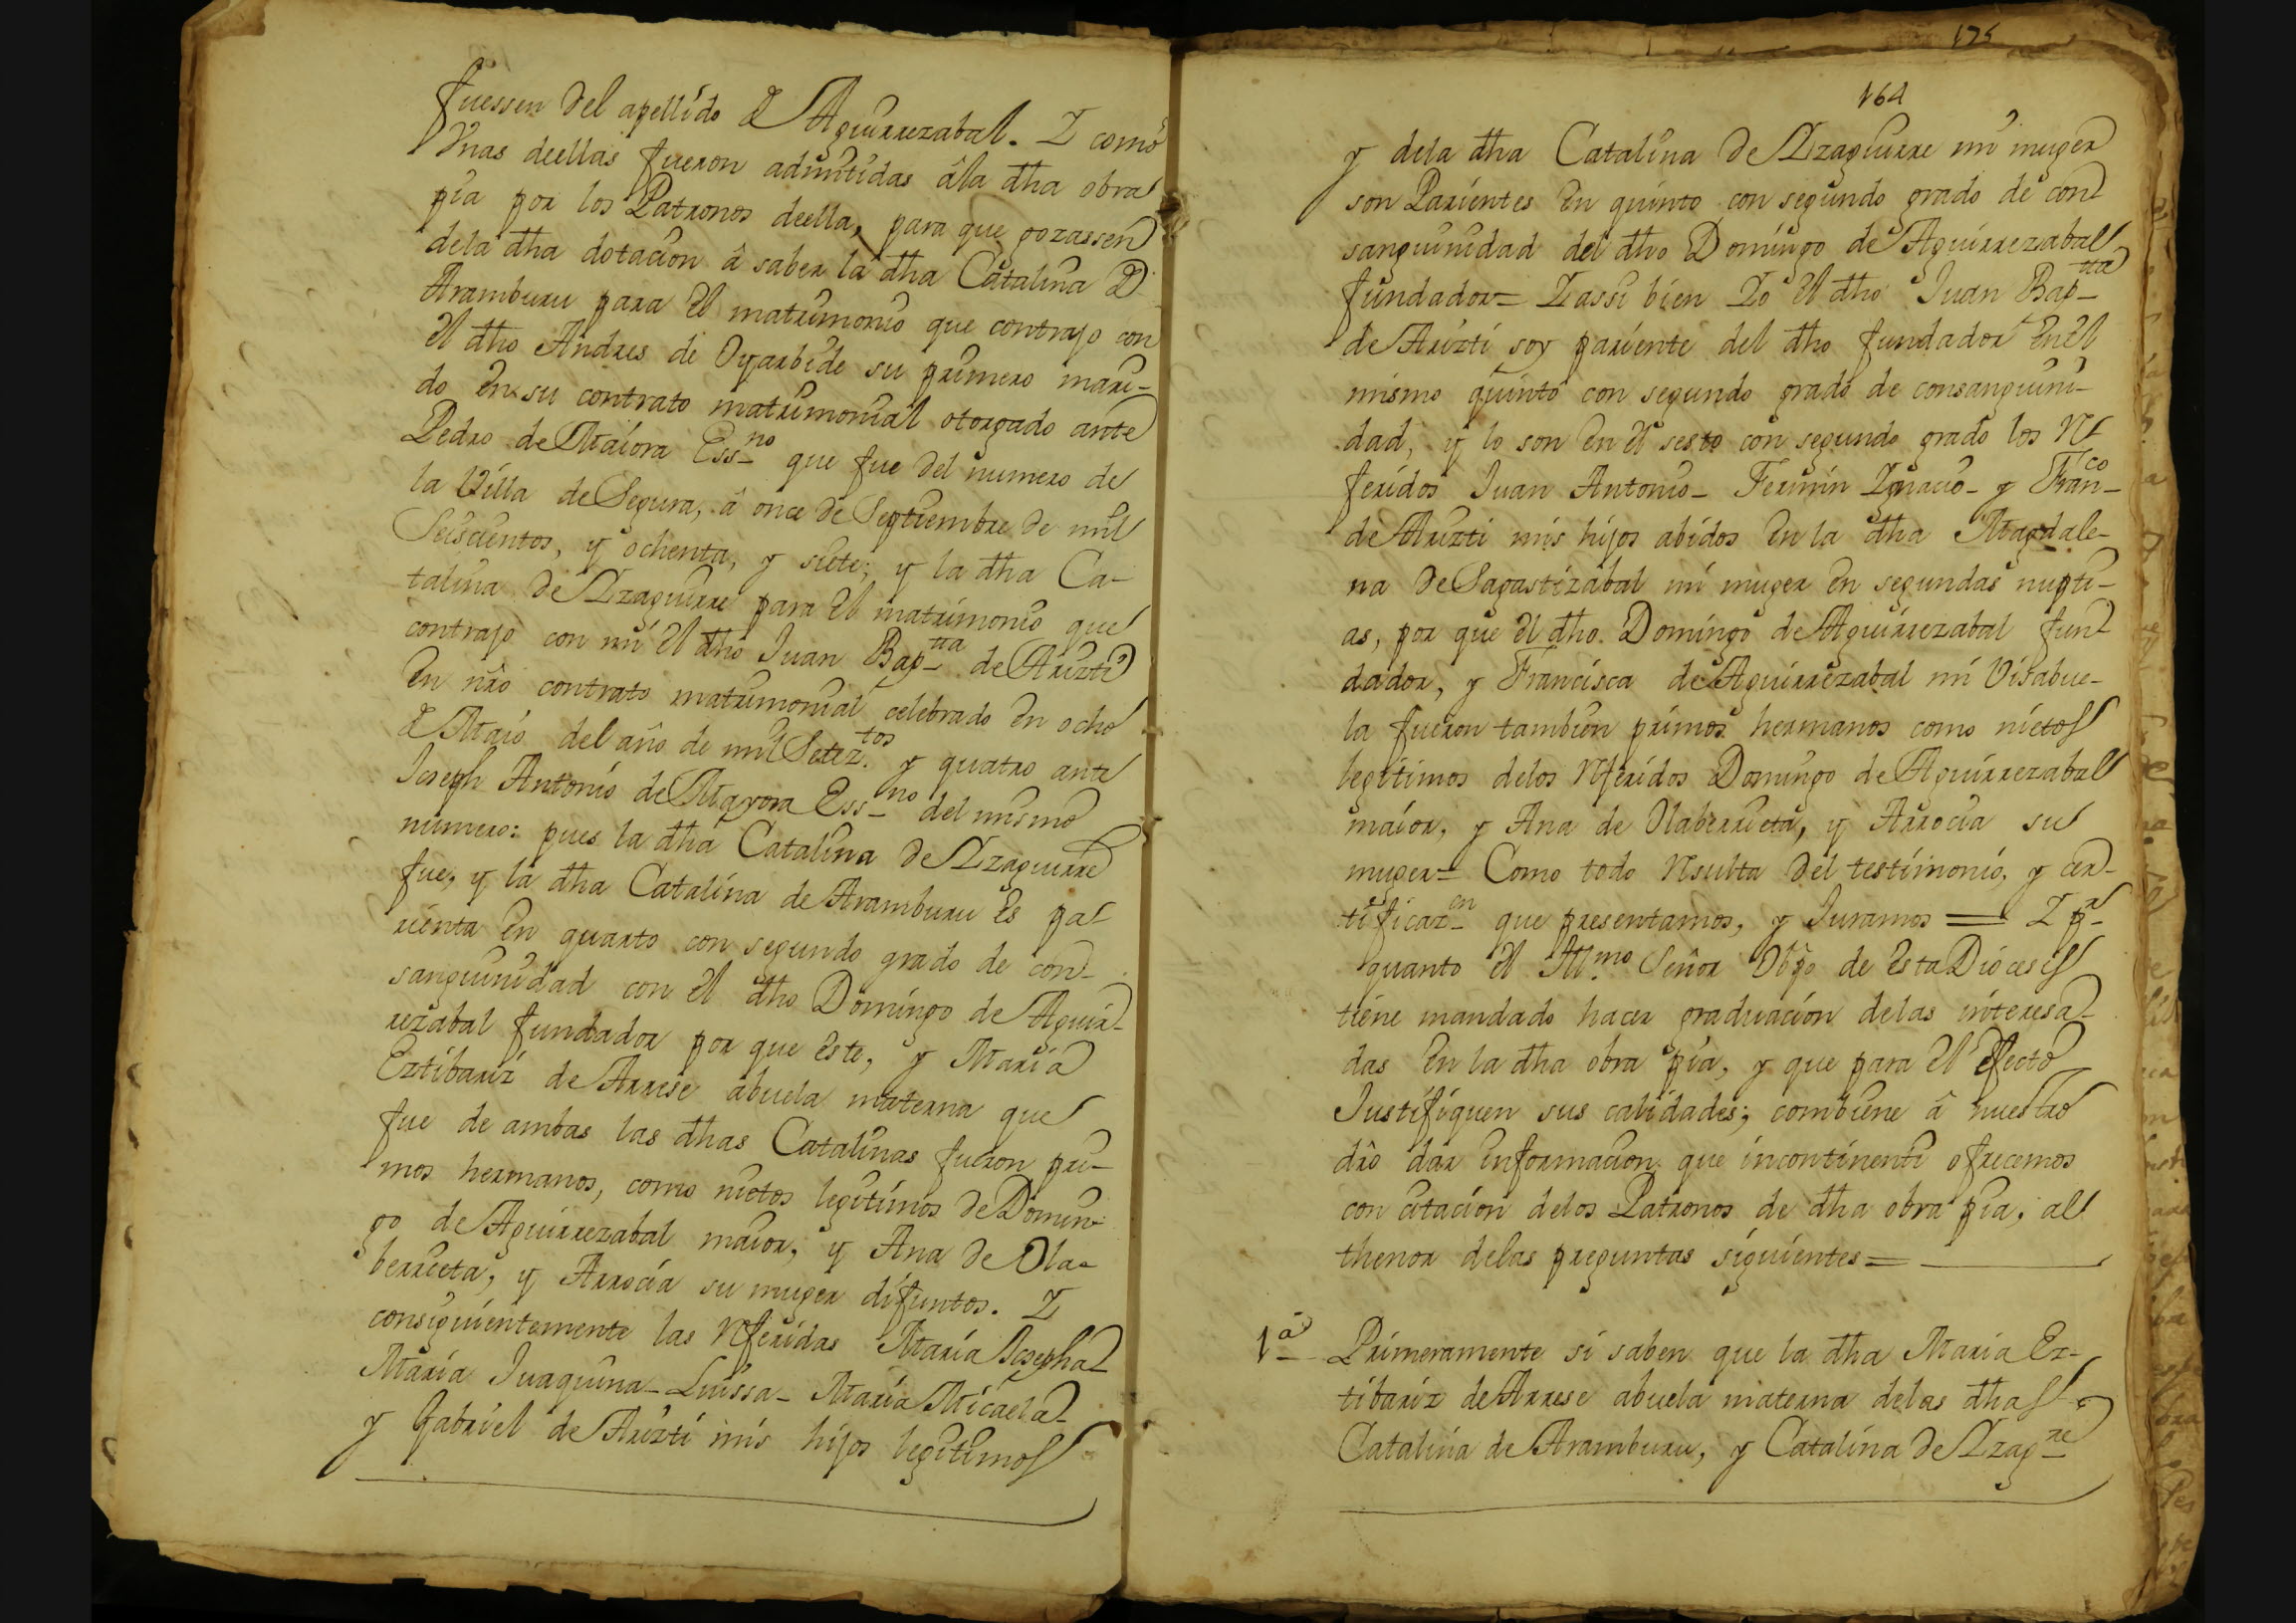 fuessen del apellido de Aguirrezabal. Y como
Vnas deellas fueron admitidas âla dha obra
pia por los Patronos deella, para que gozassen
dela dha dotacion â saber la dha Catalina de
Aramburu para el matrimonio que contrajo con
el dho Andres de Oyarbide su primero mari-
do en su contrato matrimonial otorgado ante
Pedro de Maiora Essno que fue del numero de
la Villa de Segura, â once de Septiembre de mil
Seiscientos, y ochenta, y siete; y la dha Ca-
talina de Yzaguirre para el matrimonio que
contrajo con mi el dho Juan Baptta de Arizti
en nro contrato matrimonial celebrado en ocho
de Maio del año de mil Seteztos y quatro ante
Joseph Antonio de Mayora Essno del mismo
numero: pues la dha Catalina de Yzaguirre
fue, y la dha Catalina de Aramburu es pa-
rienta en quarto con segundo grado de con-
sanguinidad con el dho Domingo de Aguir-
rezabal fundador por que este, y Maria
Eztibariz de Arrese abuela materna que
fue de ambas las dhas Catalinas fueron pri-
mos hermanos, como nietos legitimos de Domin-
go de Aguirrezabal maior, y Ana de Ola-
berrieta, y Arrocia su muger difuntos. Y
consiguientemente las Referidas Maria Josepha-
Maria Juaquina- Luissa- Maria Micaela-
y Gabriel de Arizti mis hijos legitimos
175
164
y dela dha Catalina de Yzaguirre mi muger
son Parientes en quinto con segundo grado de con-
sanguinidad del dho Domingo de Aguirrezabal
fundador= Y assi bien Yo el dho Juan Baptta
de Arizti soy pariente del dho fundador en el
mismo quinto con segundo grado de consanguini-
dad, y lo son en el sesto con segundo grado los Re-
feridos Juan Antonio- Fermin Ygnacio- y Franco
de Arizti mis hijos abidos en la dha Magdale-
na de Sagastizabal mi muger en segundas nupti-
as, por que el dho Domingo de Aguirrezabal fun-
dador, y Francisca de Aguirrezabal mi Visabue-
la fueron tambien primos hermanos como nietos
legitimos delos Referidos Domingo de Aguirrezabal
maior, y Ana de Olaberrieta, y Arrocia su
muger= Como todo Resulta del testimonio, y cer-
tificazon que presentamos, y Juramos = Y pr
quanto el Illmo Señor Obpo de esta Diocesis
tiene mandado hacer graduacion delas interesa-
das en la dha obra pia, y que para el efecto
Justifiquen sus calidades; combiene â nuestro
dro dar informacion que incontinenti ofrecemos
con citacion delos Patronos de dha obra pia, al
thenor delas preguntas siguientes=
1a Primeramente si saben que la dha Maria Ez-
tibariz de Arrese abuela materna delas dhas
Catalina de Aramburu, y Catalina de Yzagre